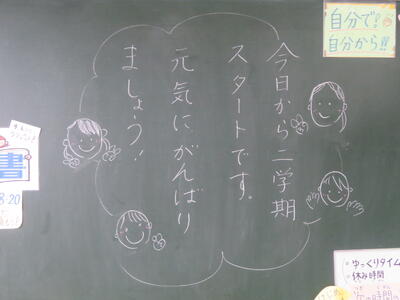 今日から二学期
スタートです。
元気にがんばり
ましょう!
自分で?
自分から!!
書
8.20
・ゆっくりタイム
・休み時間